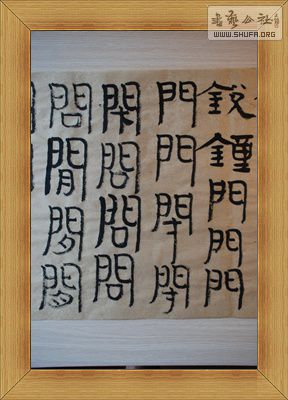 書藝公社
WWW.SHUFA.ORG
鋭鍾門門門
門門閉閉
閑問問問
問閒